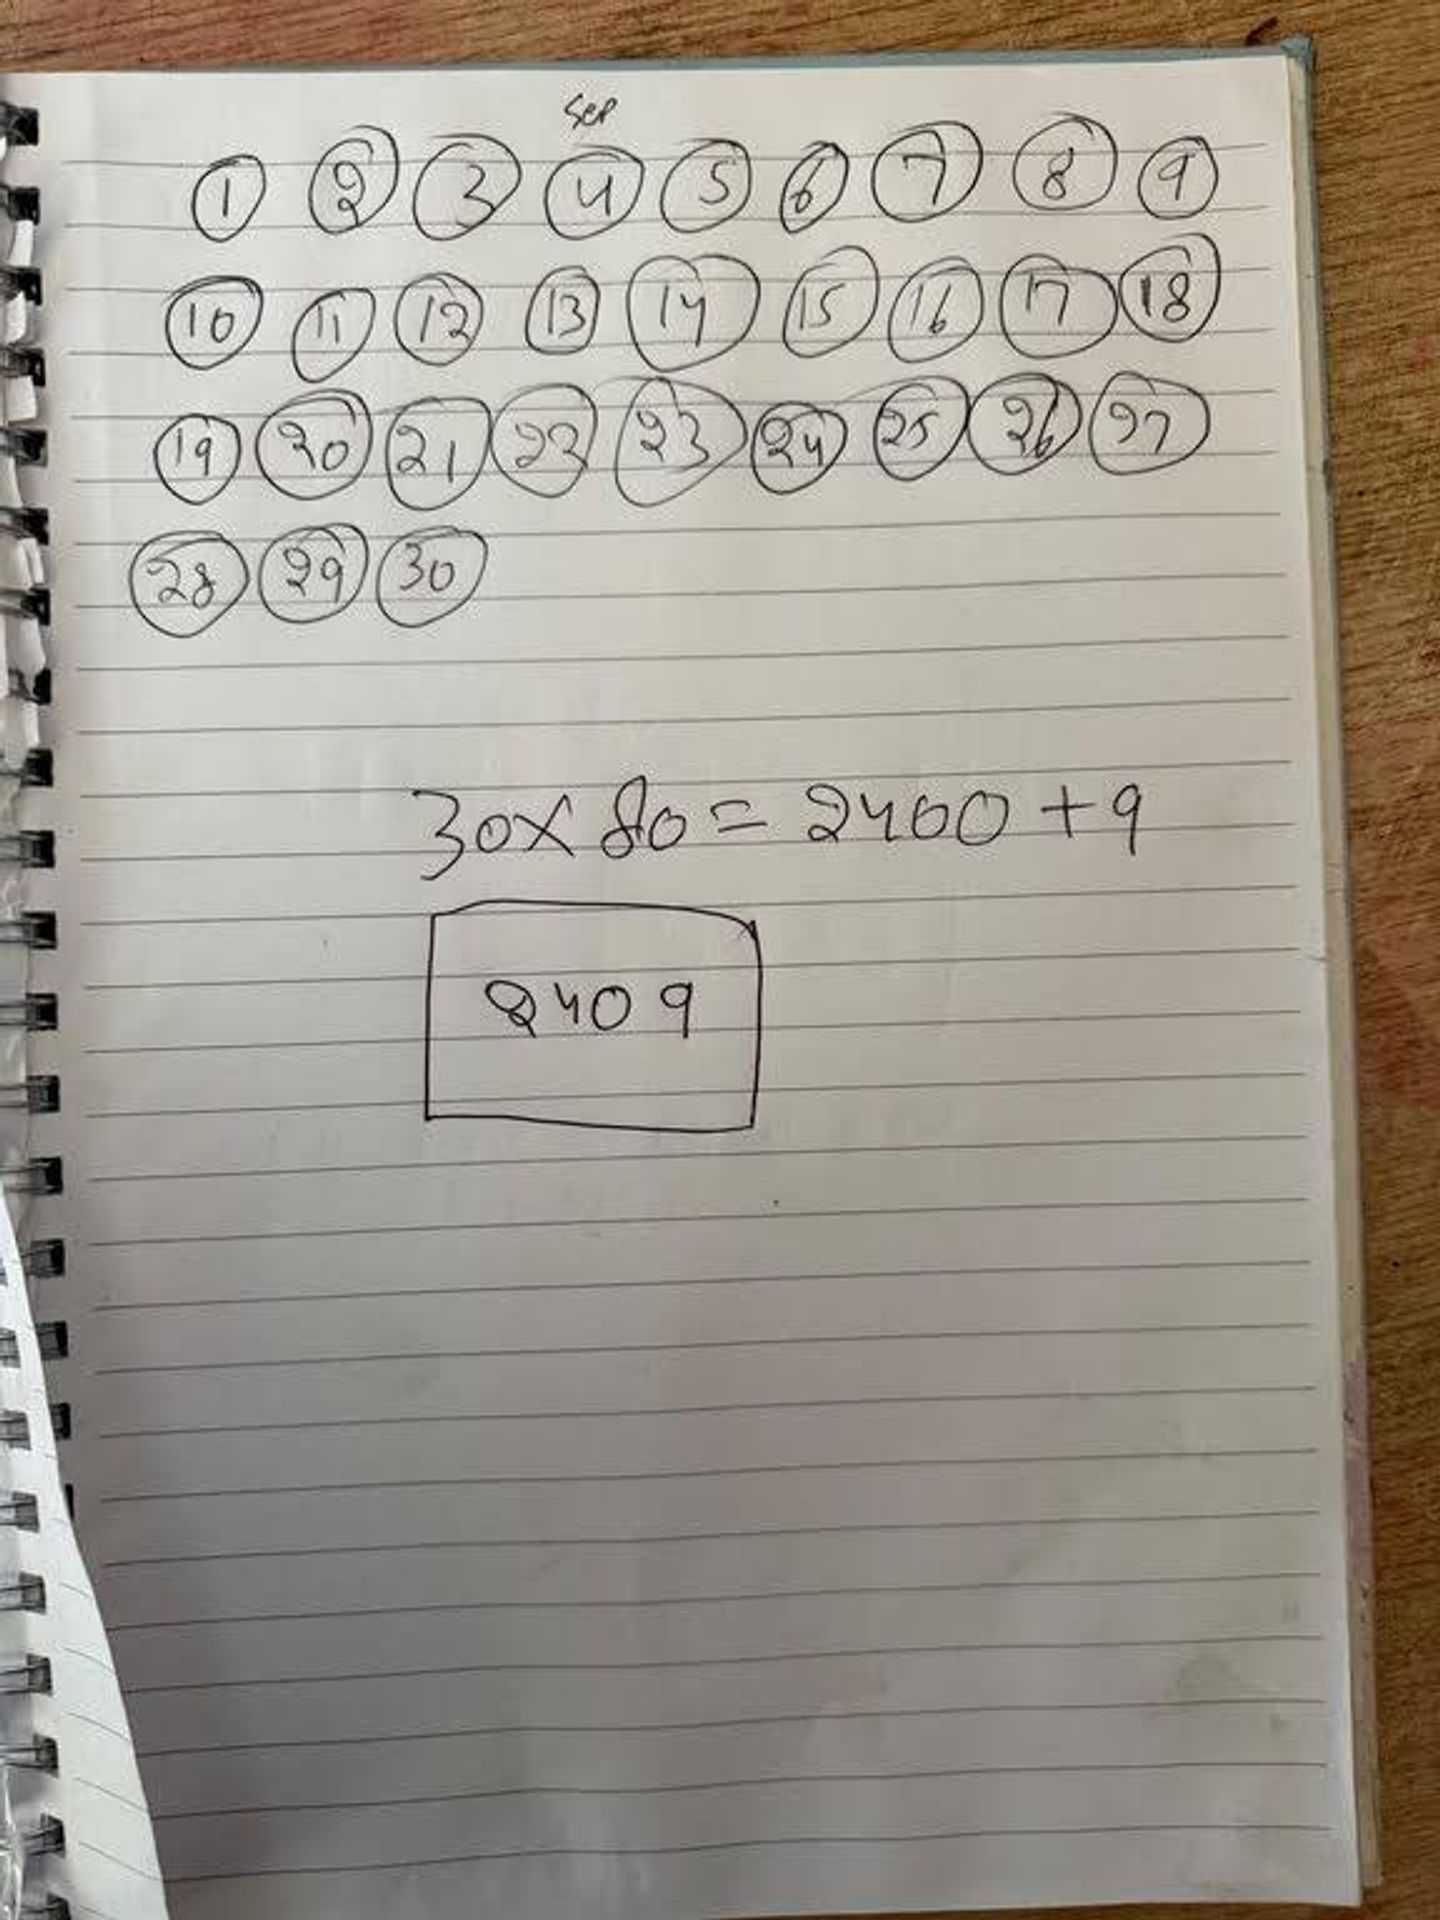 Sep
1 2 3 4 5 6 7 8 9
10 11 12 13 14 15 16 17 18
19 20 21 22 23 24 25 26 27
28 29 30
30 × 80 = 2400 + 9
2409